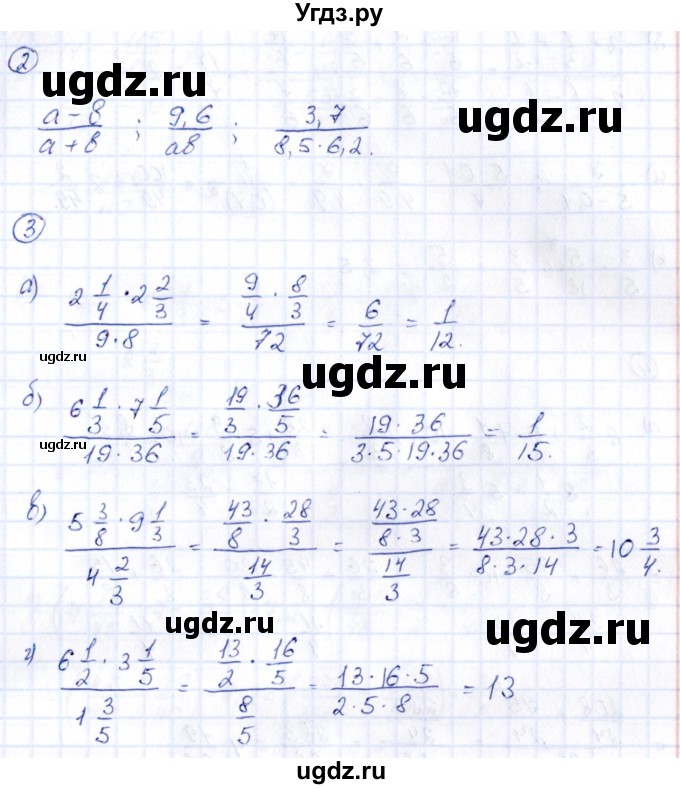 Угдз.ру
2
ugdz.ru
ugdz.ru
(a-в)/(a+в) ; 9,6/aв ; 3,7/(8,5·6,2).
3
а) (2 1/4 · 2 2/3)/(9·8) = (9/4 · 8/3)/72 = 6/72 = 1/12.
ugdz.ru
ugdz.ru
б) (6 1/3 · 7 1/5)/(19·36) = (19/3 · 36/5)/(19·36) = (19·36)/(3·5·19·36) = 1/15.
ugdz.ru
в) (5 3/8 · 9 1/3)/(4 2/3) = (43/8 · 28/3)/(14/3) = ((43·28)/(8·3))/(14/3) = (43·28·3)/(8·3·14) = 10 3/4.
ugdz.ru
ugdz.ru
г) (6 1/2 · 3 1/5)/(1 3/5) = (13/2 · 16/5)/(8/5) = (13·16·5)/(2·5·8) = 13
ugdz.ru
ugdz.ru